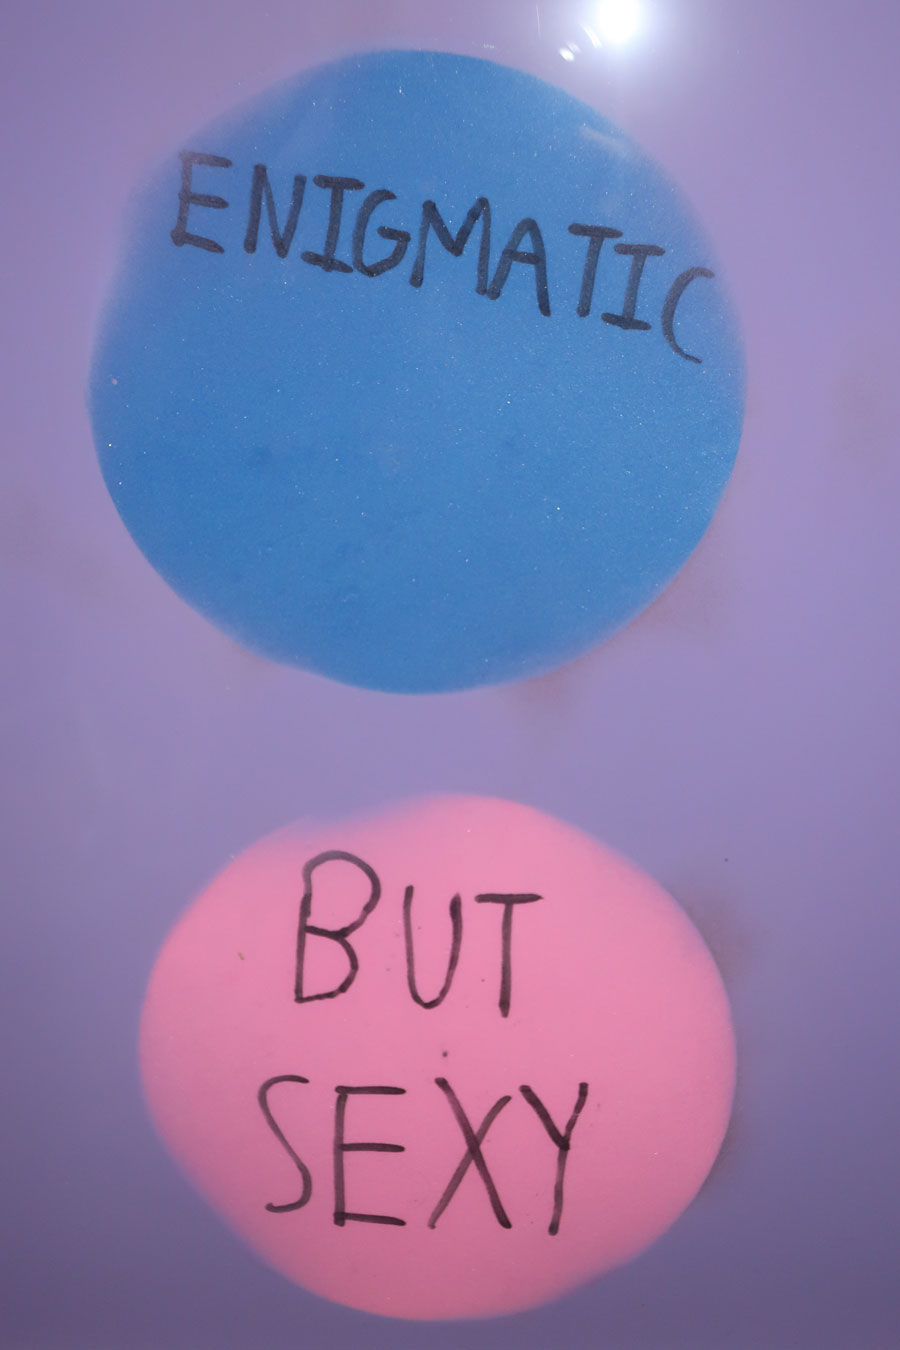 ENIGMATIC
BUT
SEXY